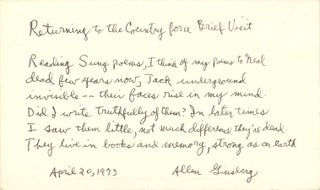 Returning to the Country for a Brief Visit
Reading Sung poems, I think of my poems to Neal
dead few years now, Jack underground
invisible -- their faces rise in my mind.
Did I write truthfully of them? In later times
I saw them little, not much difference they're dead.
They live in books and memory, strong as on earth
April 20, 1973 Allen Ginsberg